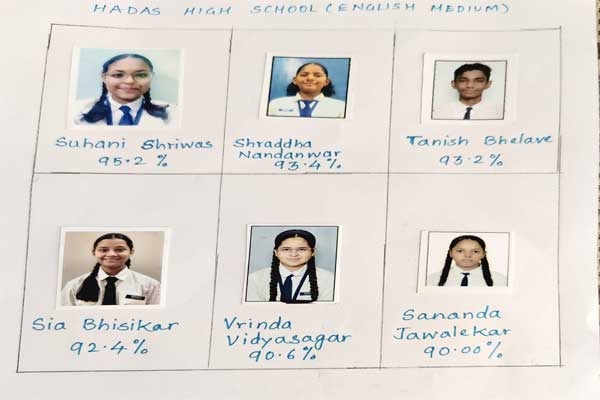 HADAS HIGH SCHOOL (ENGLISH MEDIUM)
Suhani Shriwas
95.2 %
Shraddha
Nandanwar
93.4%
Tanish Bhelave
93.2%
Sia Bhisikar
92.4%
Vrinda
Vidyasagar
90.6%
Sananda
Jawalekar
90.00%